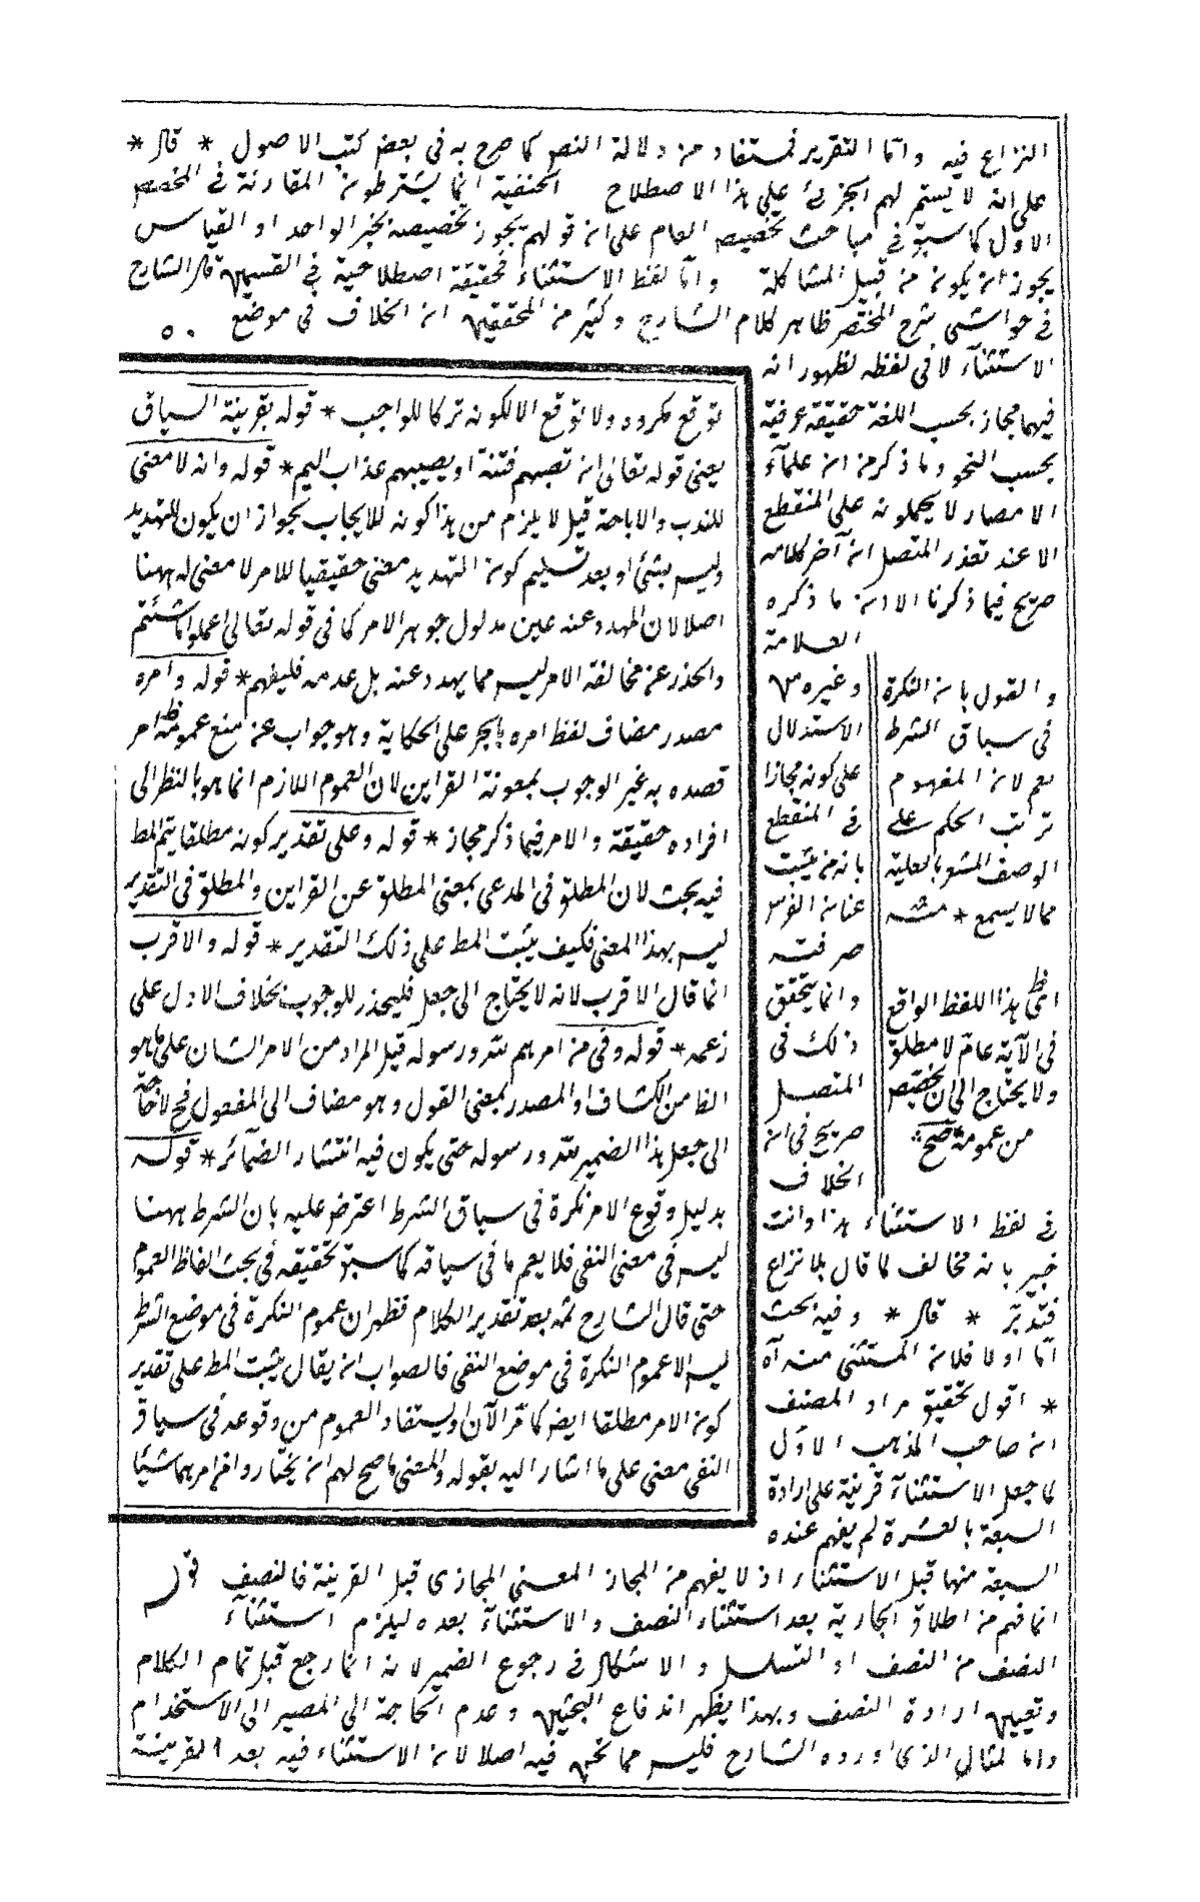 النزاع فيه واما التقرير فمستفاد من دلالة النص كما صرح به في بعض كتب الاصول * قال *
على انه لا يستمر لهم الجزئ على هذا الاصطلاح الحنفية انما يشترطون المقارنة في المخصص
الاول كما سبق في مباحث تخصيص العام على ان قولهم يجوز تخصيصه بخبر الواحد او القياس
يجوز ان يكون من قبيل المشاكلة واما لفظ الاستثناء فحقيقة اصطلاحية في القسمين قال الشارح
في حواشي شرح المختصر ظاهر كلام الشارح وكثير من المحققين ان الخلاف في موضع
الاستثناء لا في لفظه لظهور انه
فيهما مجاز بحسب اللغة حقيقة عرفية
بحسب النحو وما ذكر من ان علماء
الامصار لا يحملونه على المنقطع
الا عند تعذر المتصل ان آخر كلامه
صريح فيما ذكرنا الا ان ما ذكره
العلامة
وغيره من
الاستدلال
على كونه مجازا
في المنقطع
بانه من ثبت
عنان الفرس
صرفته
وانما يتحقق
ذلك في
المتصل
صريح في ان
الخلاف
في لفظ الاستثناء هذا وانت
خبير بانه مخالف لما قال بلا نزاع
فتدبر * قال * وفيه بحث
اما اولا فلان المستثنى منه آه
* اقول تحقيق مراد المصنف
ان صاحب المذهب الاول
لما جعل الاستثناء قرينة على ارادة
السبعة بالعشرة لم يفهم عنده
السبعة منها قبل الاستثناء اذ لا يفهم من المجاز المعنى المجازي قبل القرينة فالنصف
انما فهم من اطلاق الجارية بعد استثناء النصف والاستثناء بعده ليلزم استثناء
النصف من النصف او التسلسل والاشكال في رجوع الضمير لانه انما رجع قبل تمام الكلام
وتعيين ارادة النصف وبهذا يظهر اندفاع البحثين وعدم الحاجة الى المصير الى الاستخدام
واما المثال الذي اورده الشارح فليس مما نحن فيه اصلا لان الاستثناء فيه بعد القرينة
والقول بان النكرة
في سياق الشرط
يعم لان المفهوم
ترتب الحكم على
الوصف المشعر بالعلية
مما لا يسمع * منه
هذا اللفظ الواقع
في الآية عام لا مطلق
ولا يحتاج الى ان يخصص
من عمومه صح
توقع مكروه ولا توقع الا لكونه تركا للواجب * قوله بقرينة السياق
يعني قوله تعالى ان تصيبهم فتنة او يصيبهم عذاب اليم * قوله وانه لا معنى
للندب والاباحة قيل لا يلزم من هذا كونه للايجاب لجواز ان يكون للتهديد
وليس بشئ او بعد تسليم كون التهديد معنى حقيقيا للامر لا معنى له ههنا
اصلا لان المهدد عنه عين مدلول جوهر الامر كما في قوله تعالى اعملوا ما شئتم
والحذر عن مخالفة الامر ليس مما يهدد عنه بل عدمه فليفهم * قوله وامره
مصدر مضاف لفظ امره بالجر على الحكاية وهو جواب عن منع عموم امر
قصده به غير الوجوب بمعونة القراين لان العموم اللازم انما هو بالنظر الى
افراده حقيقة والامر فيما ذكر مجاز * قوله وعلى تقدير كونه مطلقا يتم المط
فيه بحث لان المطلق في المدعى بمعنى المطلق عن القراين والمطلق في التقدير
ليس بهذا المعنى فكيف يثبت المط على ذلك التقدير * قوله والاقرب
انما قال الاقرب لانه لا يحتاج الى جعل فليحذر للوجوب بخلاف الاول على
زعمه * قوله وفي من امرهم لله ورسوله قيل المراد من الامر الشان على ما هو
الظ من الكشاف والمصدر بمعنى القول وهو مضاف الى المفعول فح لا حاجة
الى جعل هذا الضمير لله ورسوله حتى يكون فيه انتشار الضمائر * قوله
بدليل وقوع الامر نكرة في سياق الشرط اعترض عليه بان الشرط ههنا
ليس في معنى النفي فلا يعم ما في سياقه كما سبق تحقيقه في بحث الفاظ العموم
حتى قال الشارح ثمه بعد تقدير الكلام فظهر ان عموم النكرة في موضع الشرط
ليس الا عموم النكرة في موضع النفي فالصواب ان يقال يثبت المط على تقدير
كون الامر مطلقا ايضا كما مر الآن او يستفاد العموم من وقوعه في سياق
النفي معنى على ما اشار اليه بقوله والمعنى ما صح لهم ان يختاروا من امرهما شيئا
قوله